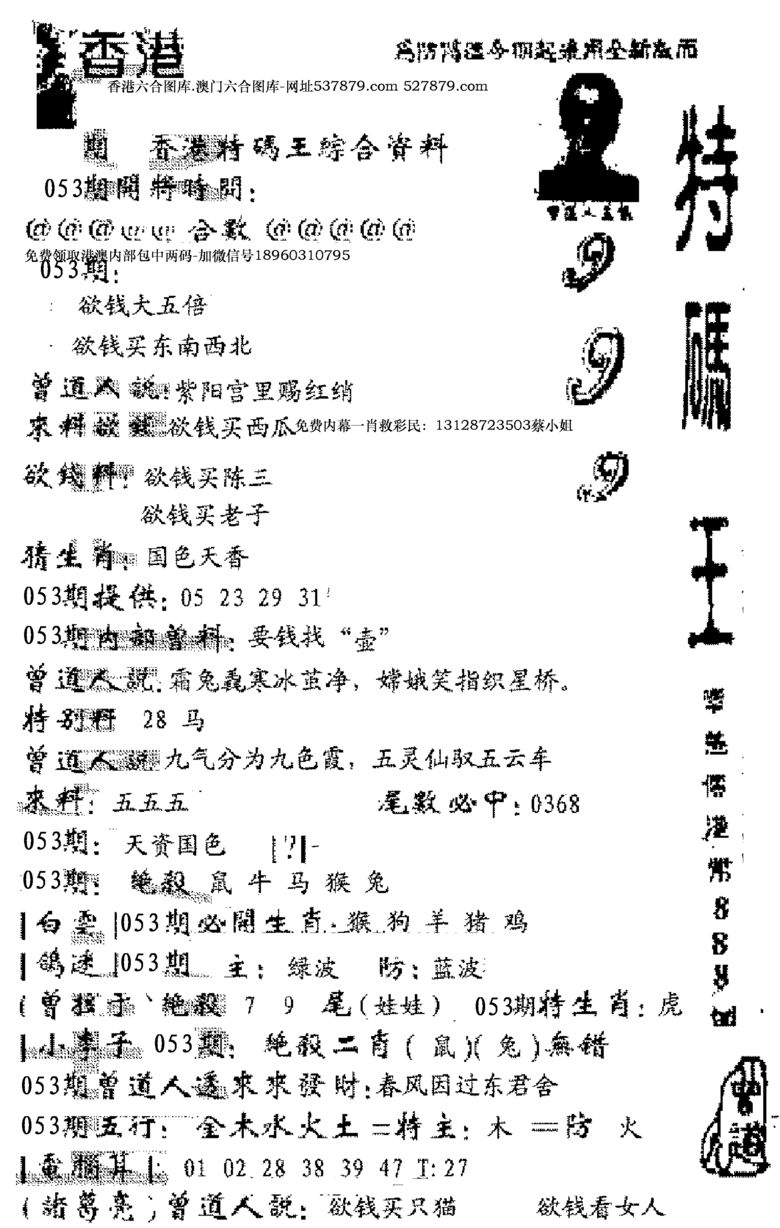 香港
為防隔溫今期起采用全新版面
香港六合图库.澳门六合图库-网址537879.com 527879.com
期 香港特碼王综合資料
特碼王
053期開將時間:
@@@ 合數 @@@@@
免费领取港澳内部包中两码-加微信号18960310795
053期:
欲钱大五倍
欲钱买东南西北
曾道人說:紫阳宫里赐红绡
來料欲錢 欲钱买西瓜
免费内幕一肖救彩民: 13128723503蔡小姐
欲錢料: 欲钱买陈三
欲钱买老子
猜生肖: 国色天香
053期提供: 05 23 29 31
053期内部曾料: 要钱找“壶”
曾道人說: 霜兔毳寒冰茧净，嫦娥笑指织星桥。
特别料 28 马
曾道人說 九气分为九色霞，五灵仙驭五云车
來料: 五五五 尾數必中: 0368
053期: 天资国色 [?]
053期: 絶殺 鼠 牛 马 猴 兔
白雲 053期必開生肖 猴 狗 羊 猪 鸡
鴿速 053期 主: 绿波 防: 蓝波
絶殺 7 9 尾(娃娃) 053期特生肖: 虎
小李子 053期: 絶殺二肖(鼠)(兔)無错
053期曾道人透來來發財:春风因过东君舍
053期五行: 金木水火土=特主: 木 =防 火
電腦耳 01 02 28 38 39 47 T:27
(諸葛亮)曾道人說: 欲钱买只猫 欲钱看女人
9
9
9
888